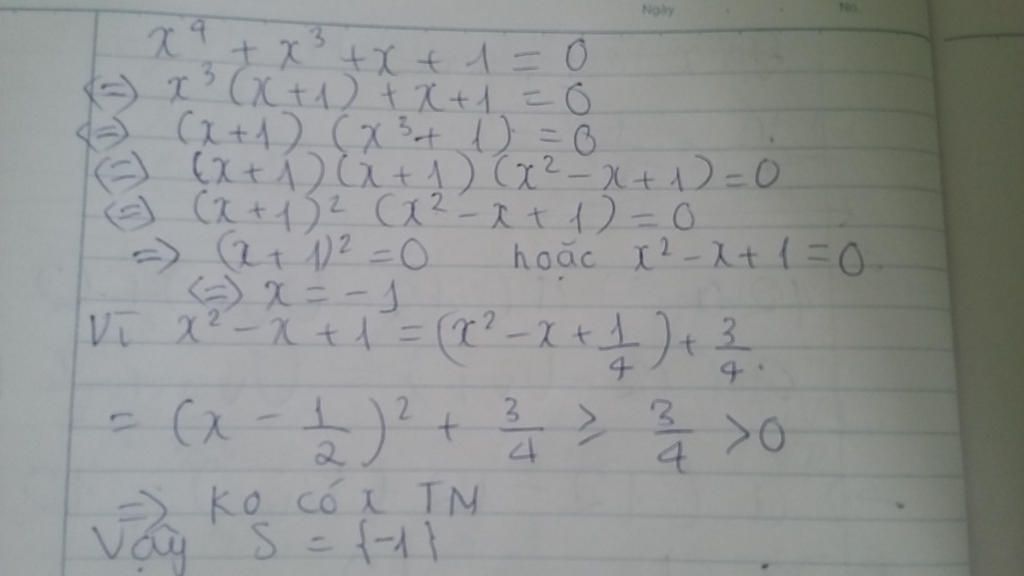 Ngày No.
x⁴ + x³ + x + 1 = 0
<=> x³ (x+1) + x+1 = 0
<=> (x+1) (x³+ 1) = 0
<=> (x+1)(x+1) (x² - x+1) = 0
<=> (x+1)² (x² - x + 1) = 0
=> (x+1)² = 0 hoặc x² - x + 1 = 0
<=> x = -1
Vì x² - x + 1 = (x² - x + 1/4) + 3/4.
= (x - 1/2)² + 3/4 ≥ 3/4 > 0
=> KO có x TM
Vậy S = {-1}